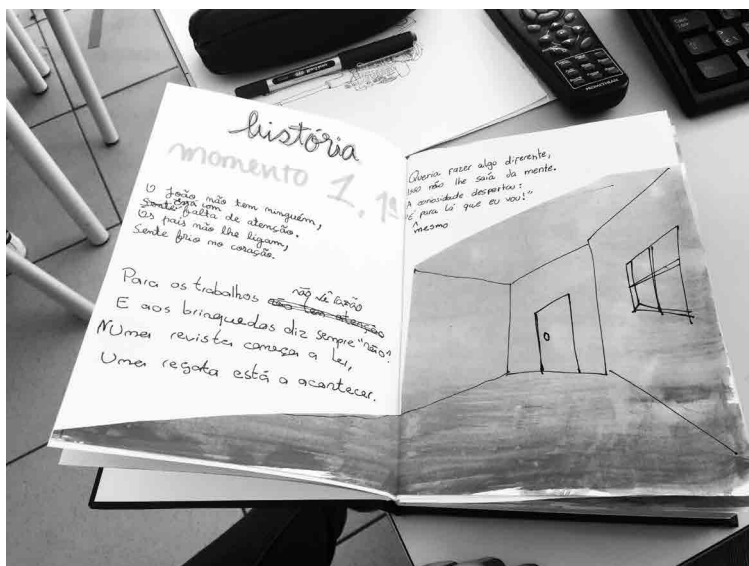 história
momento 1, 1ª
O João não tem ninguém,
Está com falta de atenção.
Os pais não lhe ligam,
Sente frio no coração.
Para os trabalhos não vê razão
E aos brinquedos diz sempre "não".
Numa revista começa a ler,
Uma regata está a acontecer.
Queria fazer algo diferente,
Isso não lhe saía da mente.
A curiosidade despertou:
"É para lá que eu vou!"
mesmo
PROMETHEAN